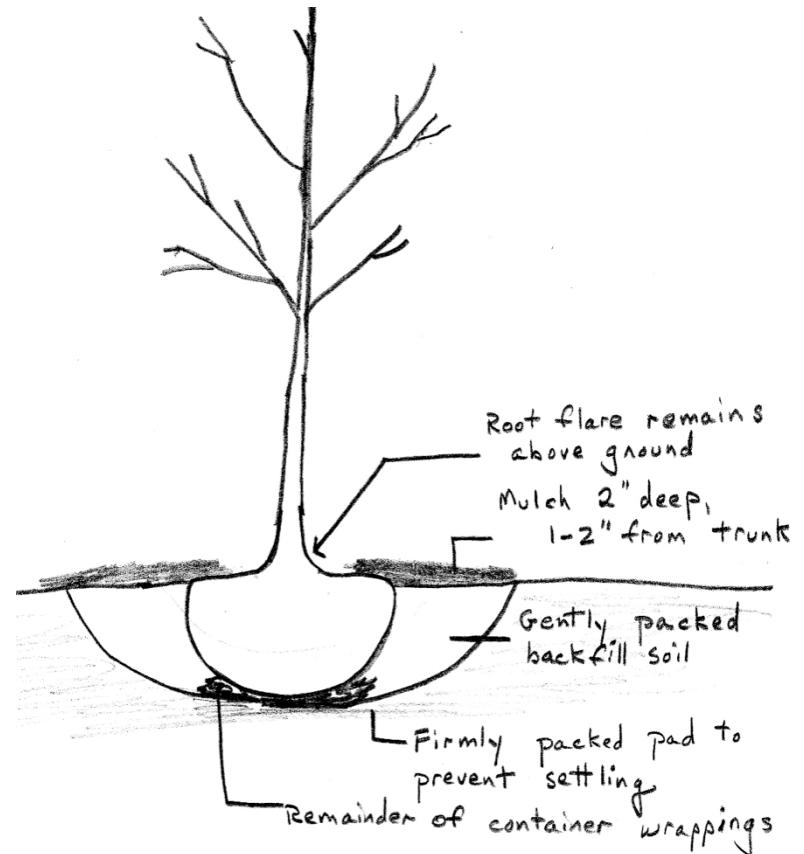 Root flare remains
above ground
Mulch 2" deep,
1-2" from trunk
Gently packed
backfill soil
Firmly packed pad to
prevent settling
Remainder of container wrappings